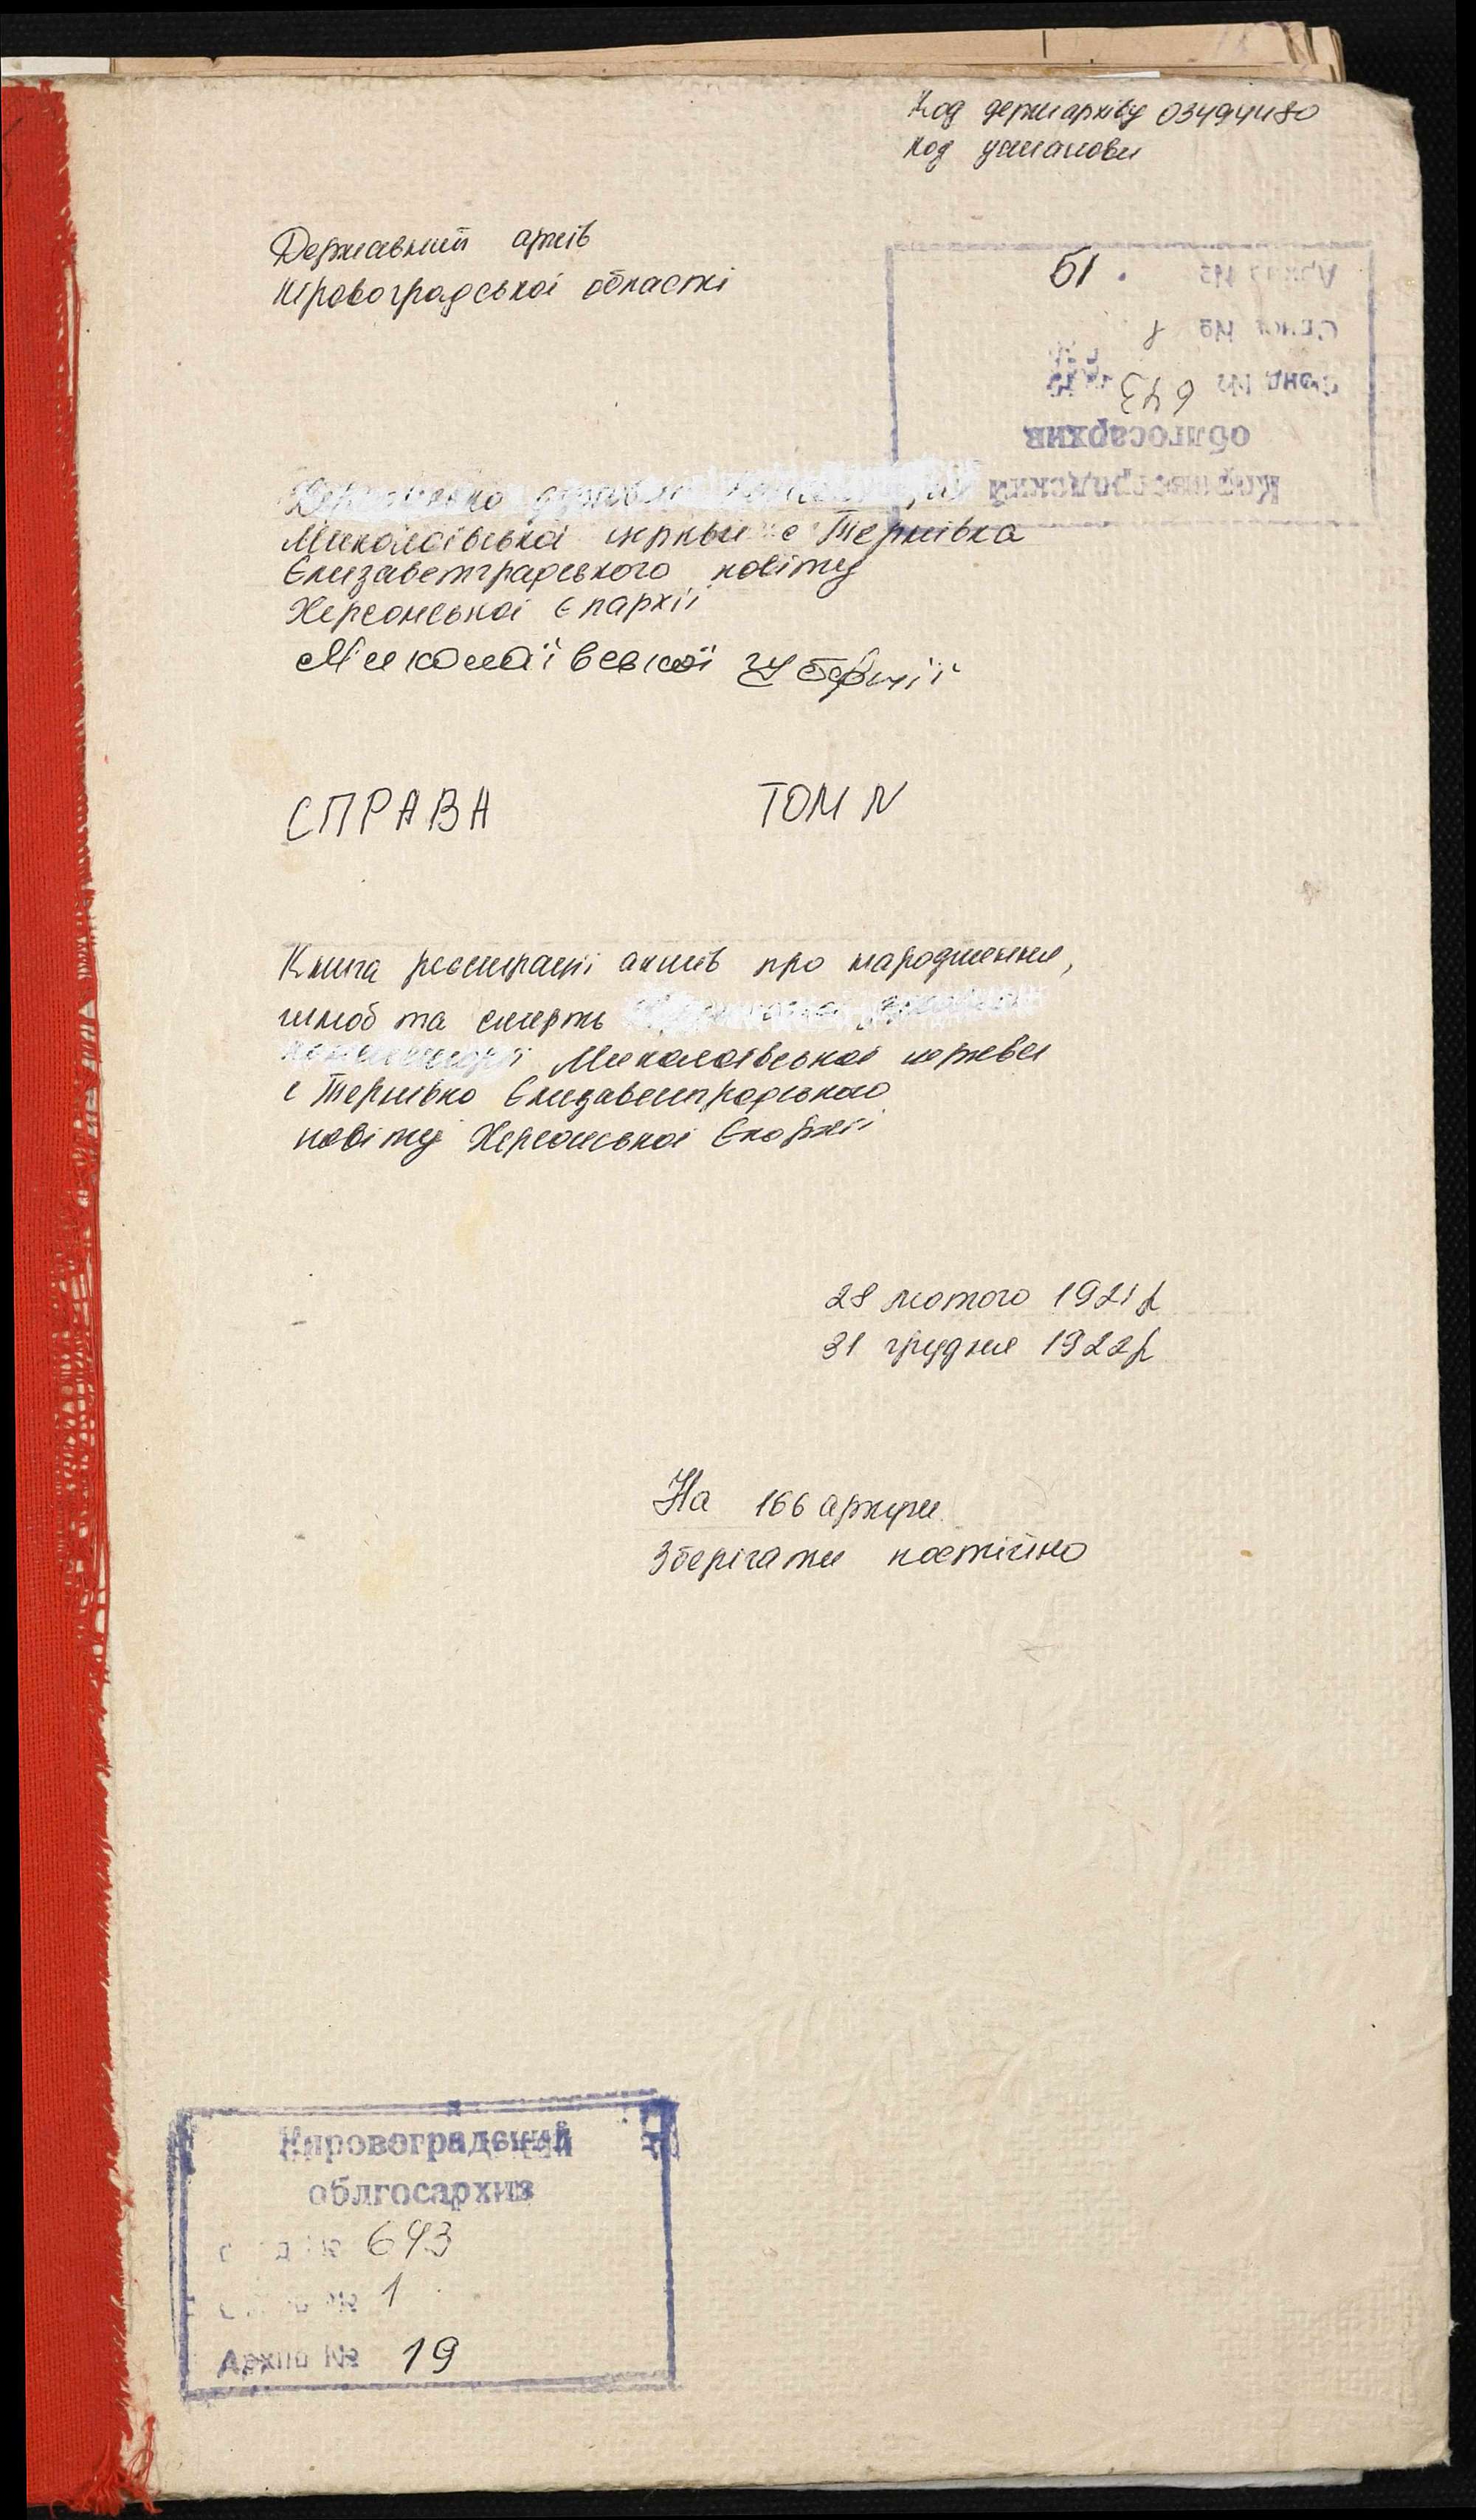 Код держархіву 03494480
Код установи
Державний архів
Кіровоградської області
Кировоградский
облгосархив
Фонд № 643
Опись № 1
Архив № 19
Миколаївської церкви с Тернівка
Єлизаветградського повіту
Херсонської Єпархії
Миколаївської губернії
СПРАВА ТОМ N
Книга реєстрації актів про народження,
шлюб та смерть
Миколаївської церкви
с Тернівка Єлизаветградського
повіту Херсонської Єпархії
28 лютого 1921 р
31 грудня 1922 р
На 166 аркуш
Зберігати постійно
Кировоградский
облгосархив
Фонд № 693
Опись № 1
Архив № 19